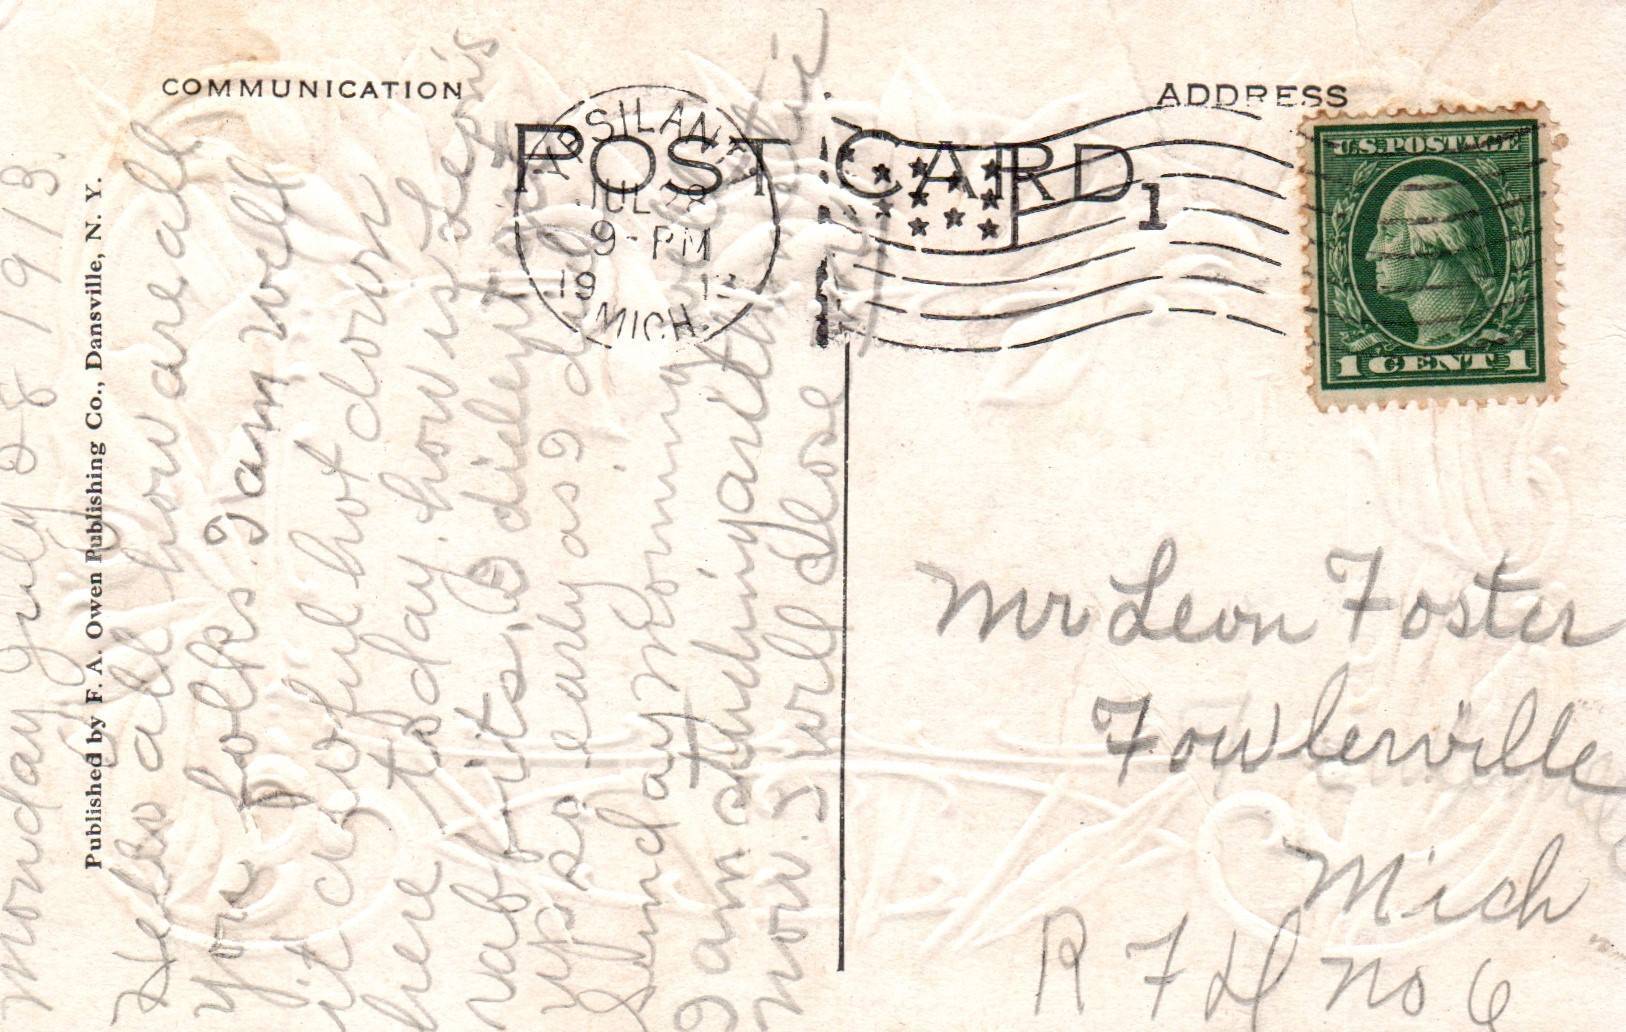 COMMUNICATION
ADDRESS
POST CARD
YPSILANTI
JUL 28
9 - PM
19 13
MICH.
1
U.S. POSTAGE
1 CENT 1
Published by F. A. Owen Publishing Co., Dansville, N. Y.
Monday July 28 1913.
Hello all how are all
you folks. I am well
it awful hot down
here to day. how is Leon's
rabbits. I
up so early as I did
Sunday Morning.
I am
now. I will close
Mr Leon Foster
Fowlerville
Mich
R F D No 6